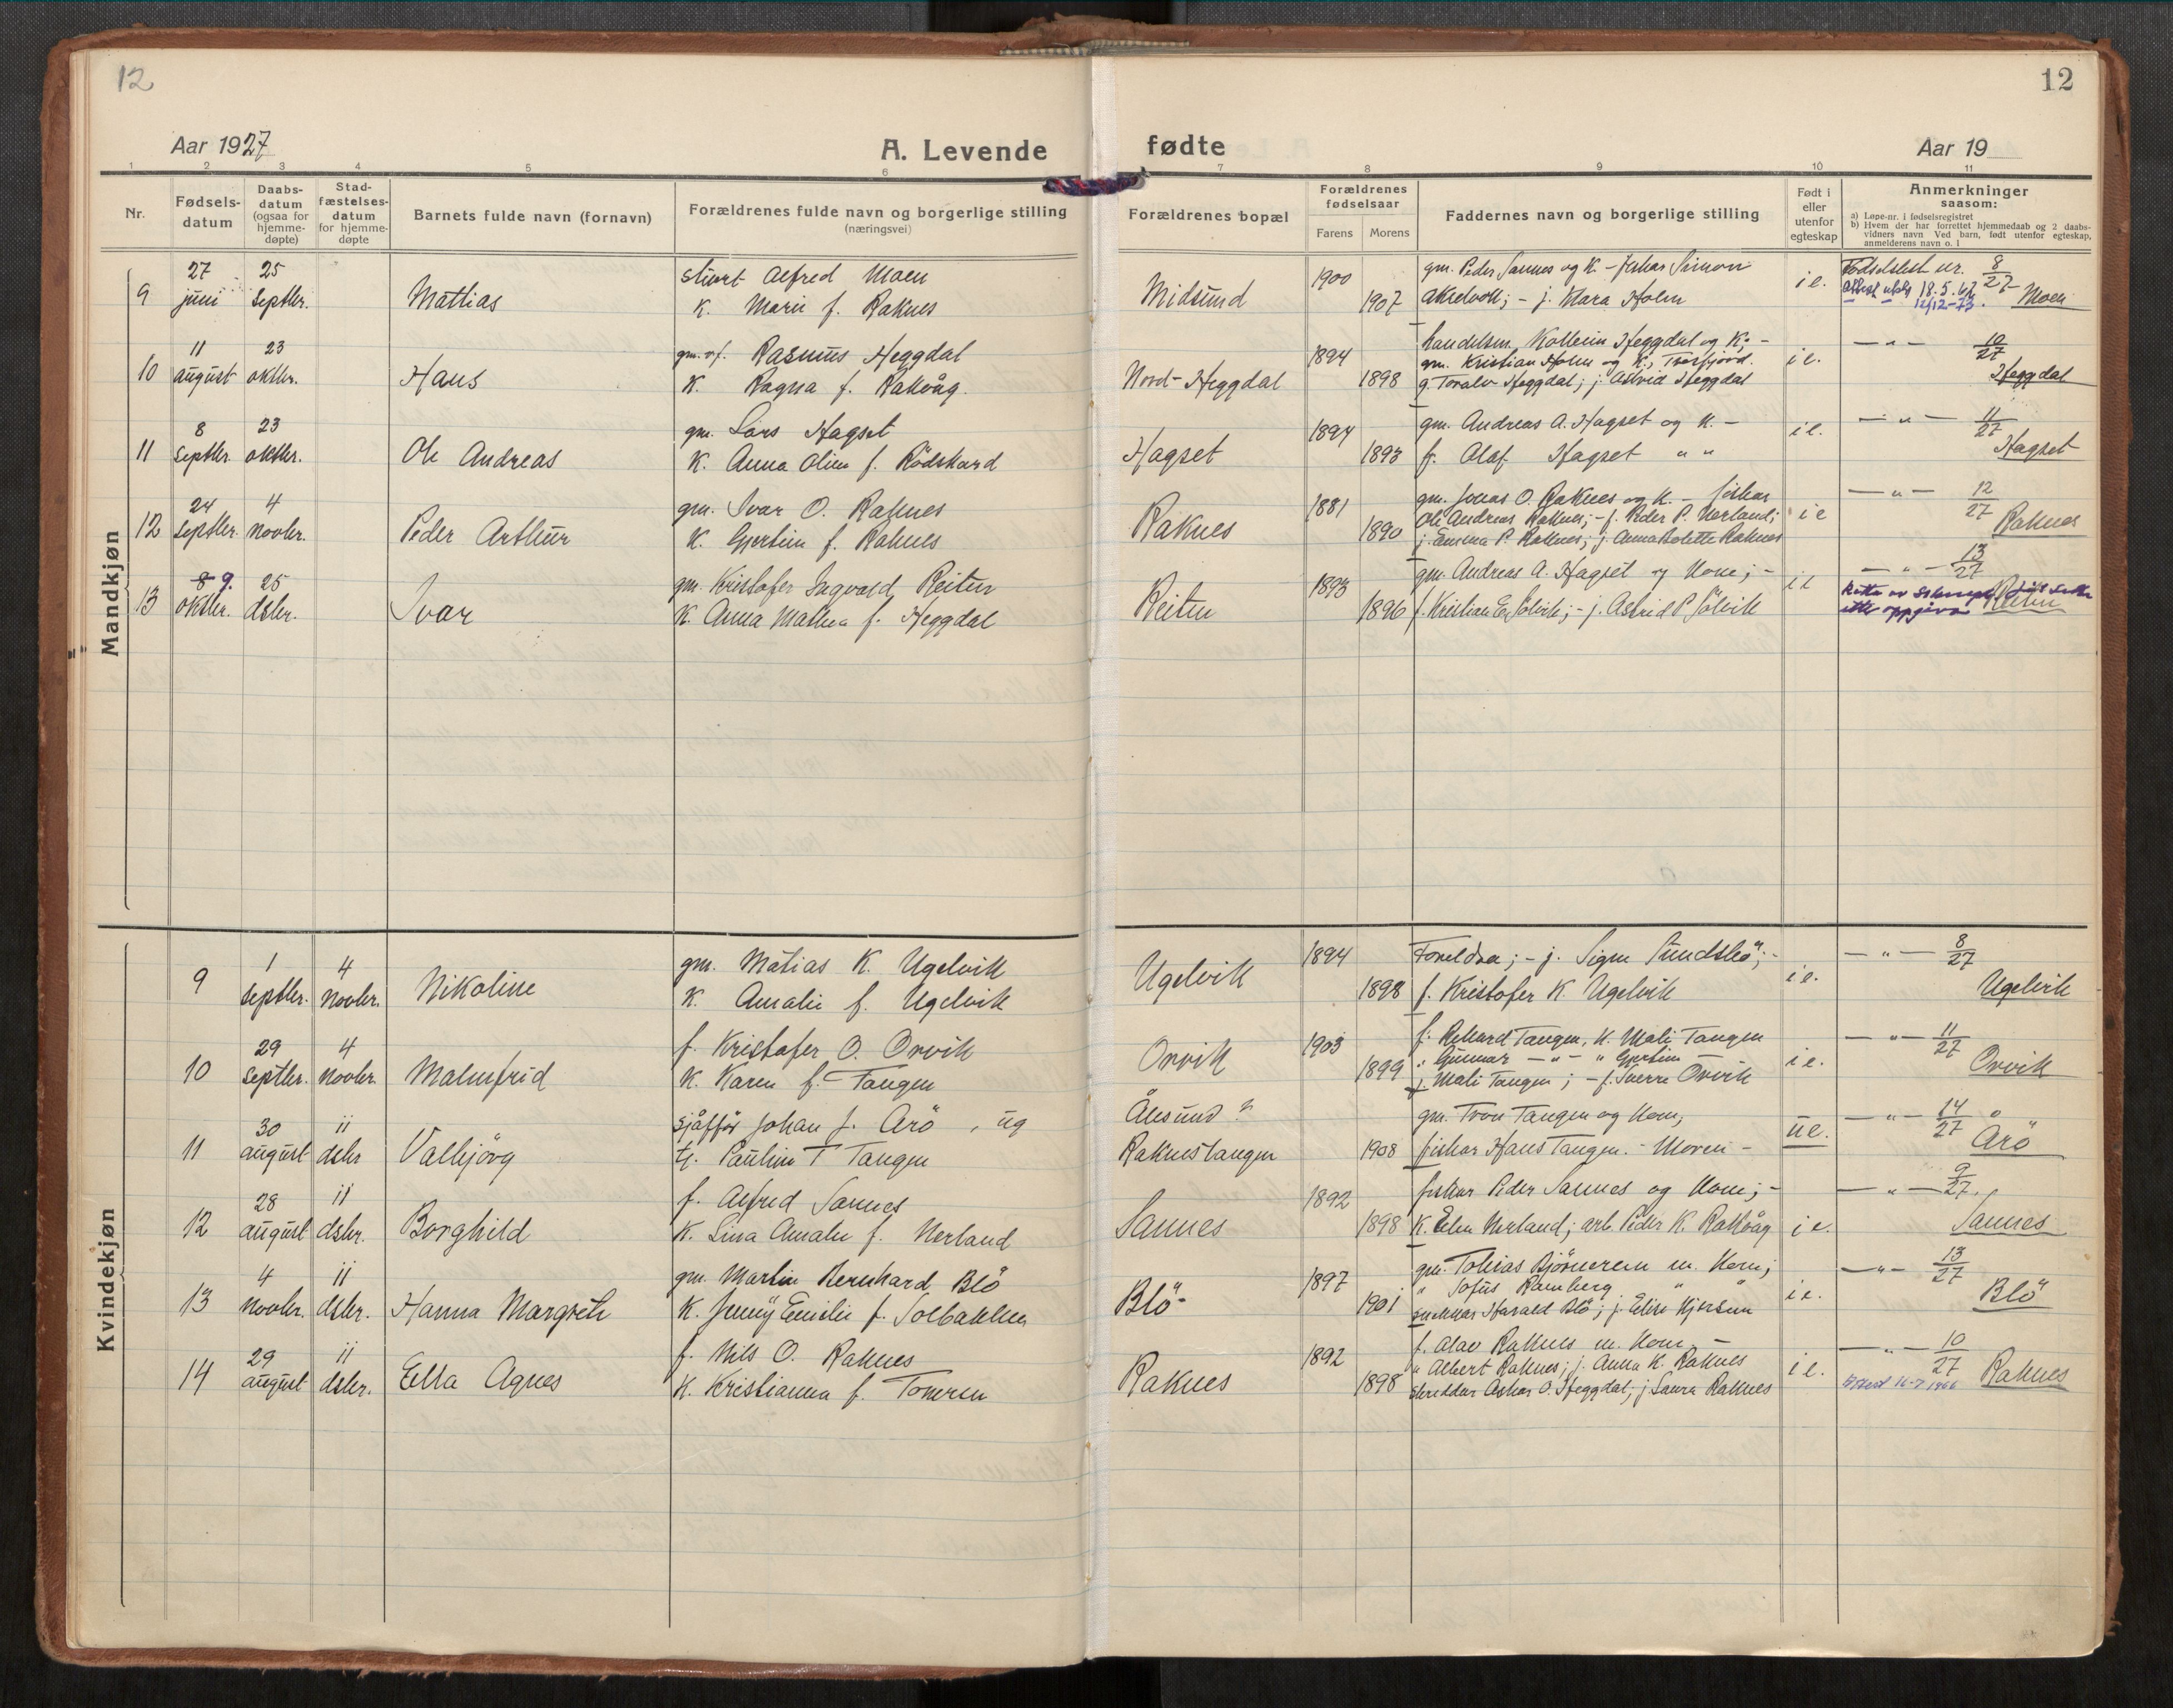 12
Aar 1927
A. Levende
1 2 3 4 5 6
Nr.
Fødsels-
datum
Daabs-
datum
(ogsaa for
hjemme-
døpte)
Stad-
fæstelses-
datum
for hjemme-
døpte
Barnets fulde navn (fornavn)
Forældrenes fulde navn og borgerlige stilling
(næringsvei)
Mandkjøn
9
27
juni
25
septbr.
Mattias
Alfred Moen
K. Marie f. Raknes
10
11
august
23
oktbr.
Hans
Rasmus Heggdal
K. Ragna f. Rakvåg.
11
8
septbr.
23
oktbr.
Ole Andreas
gm. Lars Hagset
K. Anna Oline f. Rödskard
12
24
septbr.
4
novbr.
Peder Arthur
gm. Ivar O. Raknes
K. Gjertine f. Raknes
13
8 9.
oktbr.
25
dsbr.
Ivar
gm. Kristofer Ingvald Reiten
K. Anna Mathea f. Heggdal
Kvindekjøn
9
1
septbr.
4
novbr.
Nikoline
gm. Matias K. Ugelvik
K. Amalie f. Ugelvik
10
29
septbr.
4
novbr.
Malmfrid
f. Kristofer O. Orvik
K. Karen f. Tangen
11
30
august
11
dsbr
Valbjörg
sjåffør Johan J. Arö, ug
tj. Pauline T Tangen
12
28
august
11
dsbr.
Borghild
f. Alfred Sannes
K. Lina Amalie f. Nerland
13
4
novbr.
11
dsbr.
Hanna Margreth
gm. Martin Bernhard Blö
K. Jenny Emilie f. Solbakken
14
29
august
11
dsbr.
Ella Agnes
f. Nils O. Raknes
K. Kristianna f. Tomren
12
fødte
Aar 19
7 8 9 10 11
Forældrenes bopæl
Forældrenes
fødselsaar
Farens Morens
Faddernes navn og borgerlige stilling
Født i
eller
utenfor
egteskap
Anmerkninger
saasom:
a) Løpe-nr. i fødselsregistret
b) Hvem der har forrettet hjemmedaab og 2 daabs-
vidners navn Ved barn, født utenfor egteskap,
anmelderens navn o. l
Midsund
1900
1907
gm. Peder Sannes og K. - fiskar Simon
Akselvoll; - j. Mara Holm
i e.
Fødselslist nr. 8/27
18.5.42
12/12-73.
Moen
Nord-Heggdal
1894
1898
handelsm. Kolbein Heggdal og K; -
gm. Kristian Holm og K;, Tresfjord.
g. Toralv Heggdal; j. Astrid Heggdal
i e.
— " — 10/27
Heggdal
Hagset
1894
1893
gm. Andreas A. Hagset og K. -
f. Olaf Hagset " "
i e.
— " — 11/27
Hagset
Raknes
1881
1890
gm. Jonas O. Raknes og K. - fiskar
Ole Andreas Raknes; - f. Peder P. Nerland;
j. Emma P. Raknes; j. Anna Bolette Raknes
i e
— " — 12/27
Raknes
Reiten
1893
1896
gm. Andreas A. Hagset og Kone; -
f. Kristian E. Solvik; - j. Astrid P. Sölvik
i e
— " — 13/27
Reiten
Ugelvik
1894
1898
Foreldra; - j. Signe Sundsbö; -
f. Kristofer K. Ugelvik
i e.
— " — 8/27
Ugelvik
Orvik
1903
1899
f. Rikard Tangen, K. Mali Tangen
" Gunnar — " — " Gjertine —
j. Mali Tangen; - f. Sverre Orvik
i e.
— " — 11/27
Orvik
Ålesund ?
Raknestangen
1908
gm. Tron Tangen og Kone,
fiskar Hans Tangen. - Moren -
u e.
— " — 14/27
Arö
Sannes
1892
1898
fiskar Peder Sannes og Kone; -
K. Elen Nerland; arb. Peder K. Rakvåg
i e.
— " — 9/27.
Sannes
Blö
1897
1901
gm. Tobias Bjørnerem m. Kone;
" Sofus Ramberg " "
snekkar Harald Blö; j. Elise Kjersem
i e.
— " — 13/27
Blö
Raknes
1892
1898
f. Olav Raknes m. Kone. -
" Albert Raknes; j. Anna K. Raknes
skreddar Oskar O. Heggdal; j Laura Raknes
i e.
— " — 10/27
Attest 16-7 1966
Raknes